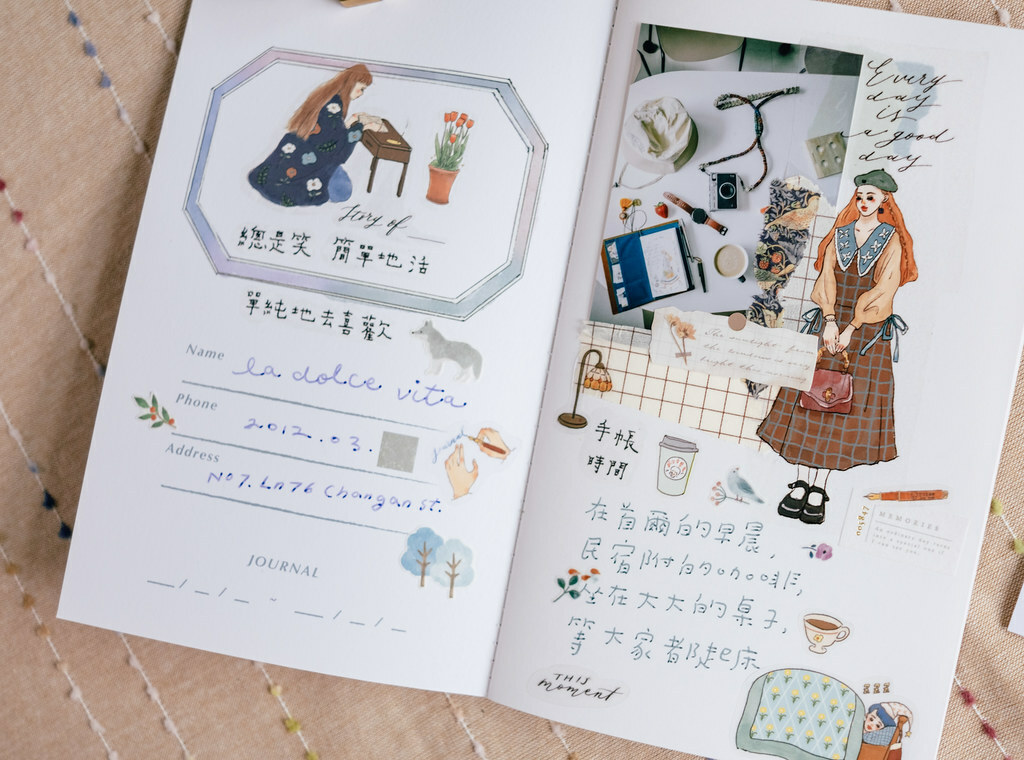 Story of
總是笑 簡單地活
單純地去喜歡
Name
la dolce vita
Phone
2012.03.
Address
No7. Ln76 Changan st.
JOURNAL
__/__/__ ~ __/__/__
Every
day
is
a good
day
手帳
時間
MEMORIES
在首爾的早晨，
民宿附的咖啡，
坐在大大的桌子，
等大家都起床
THIS
moment